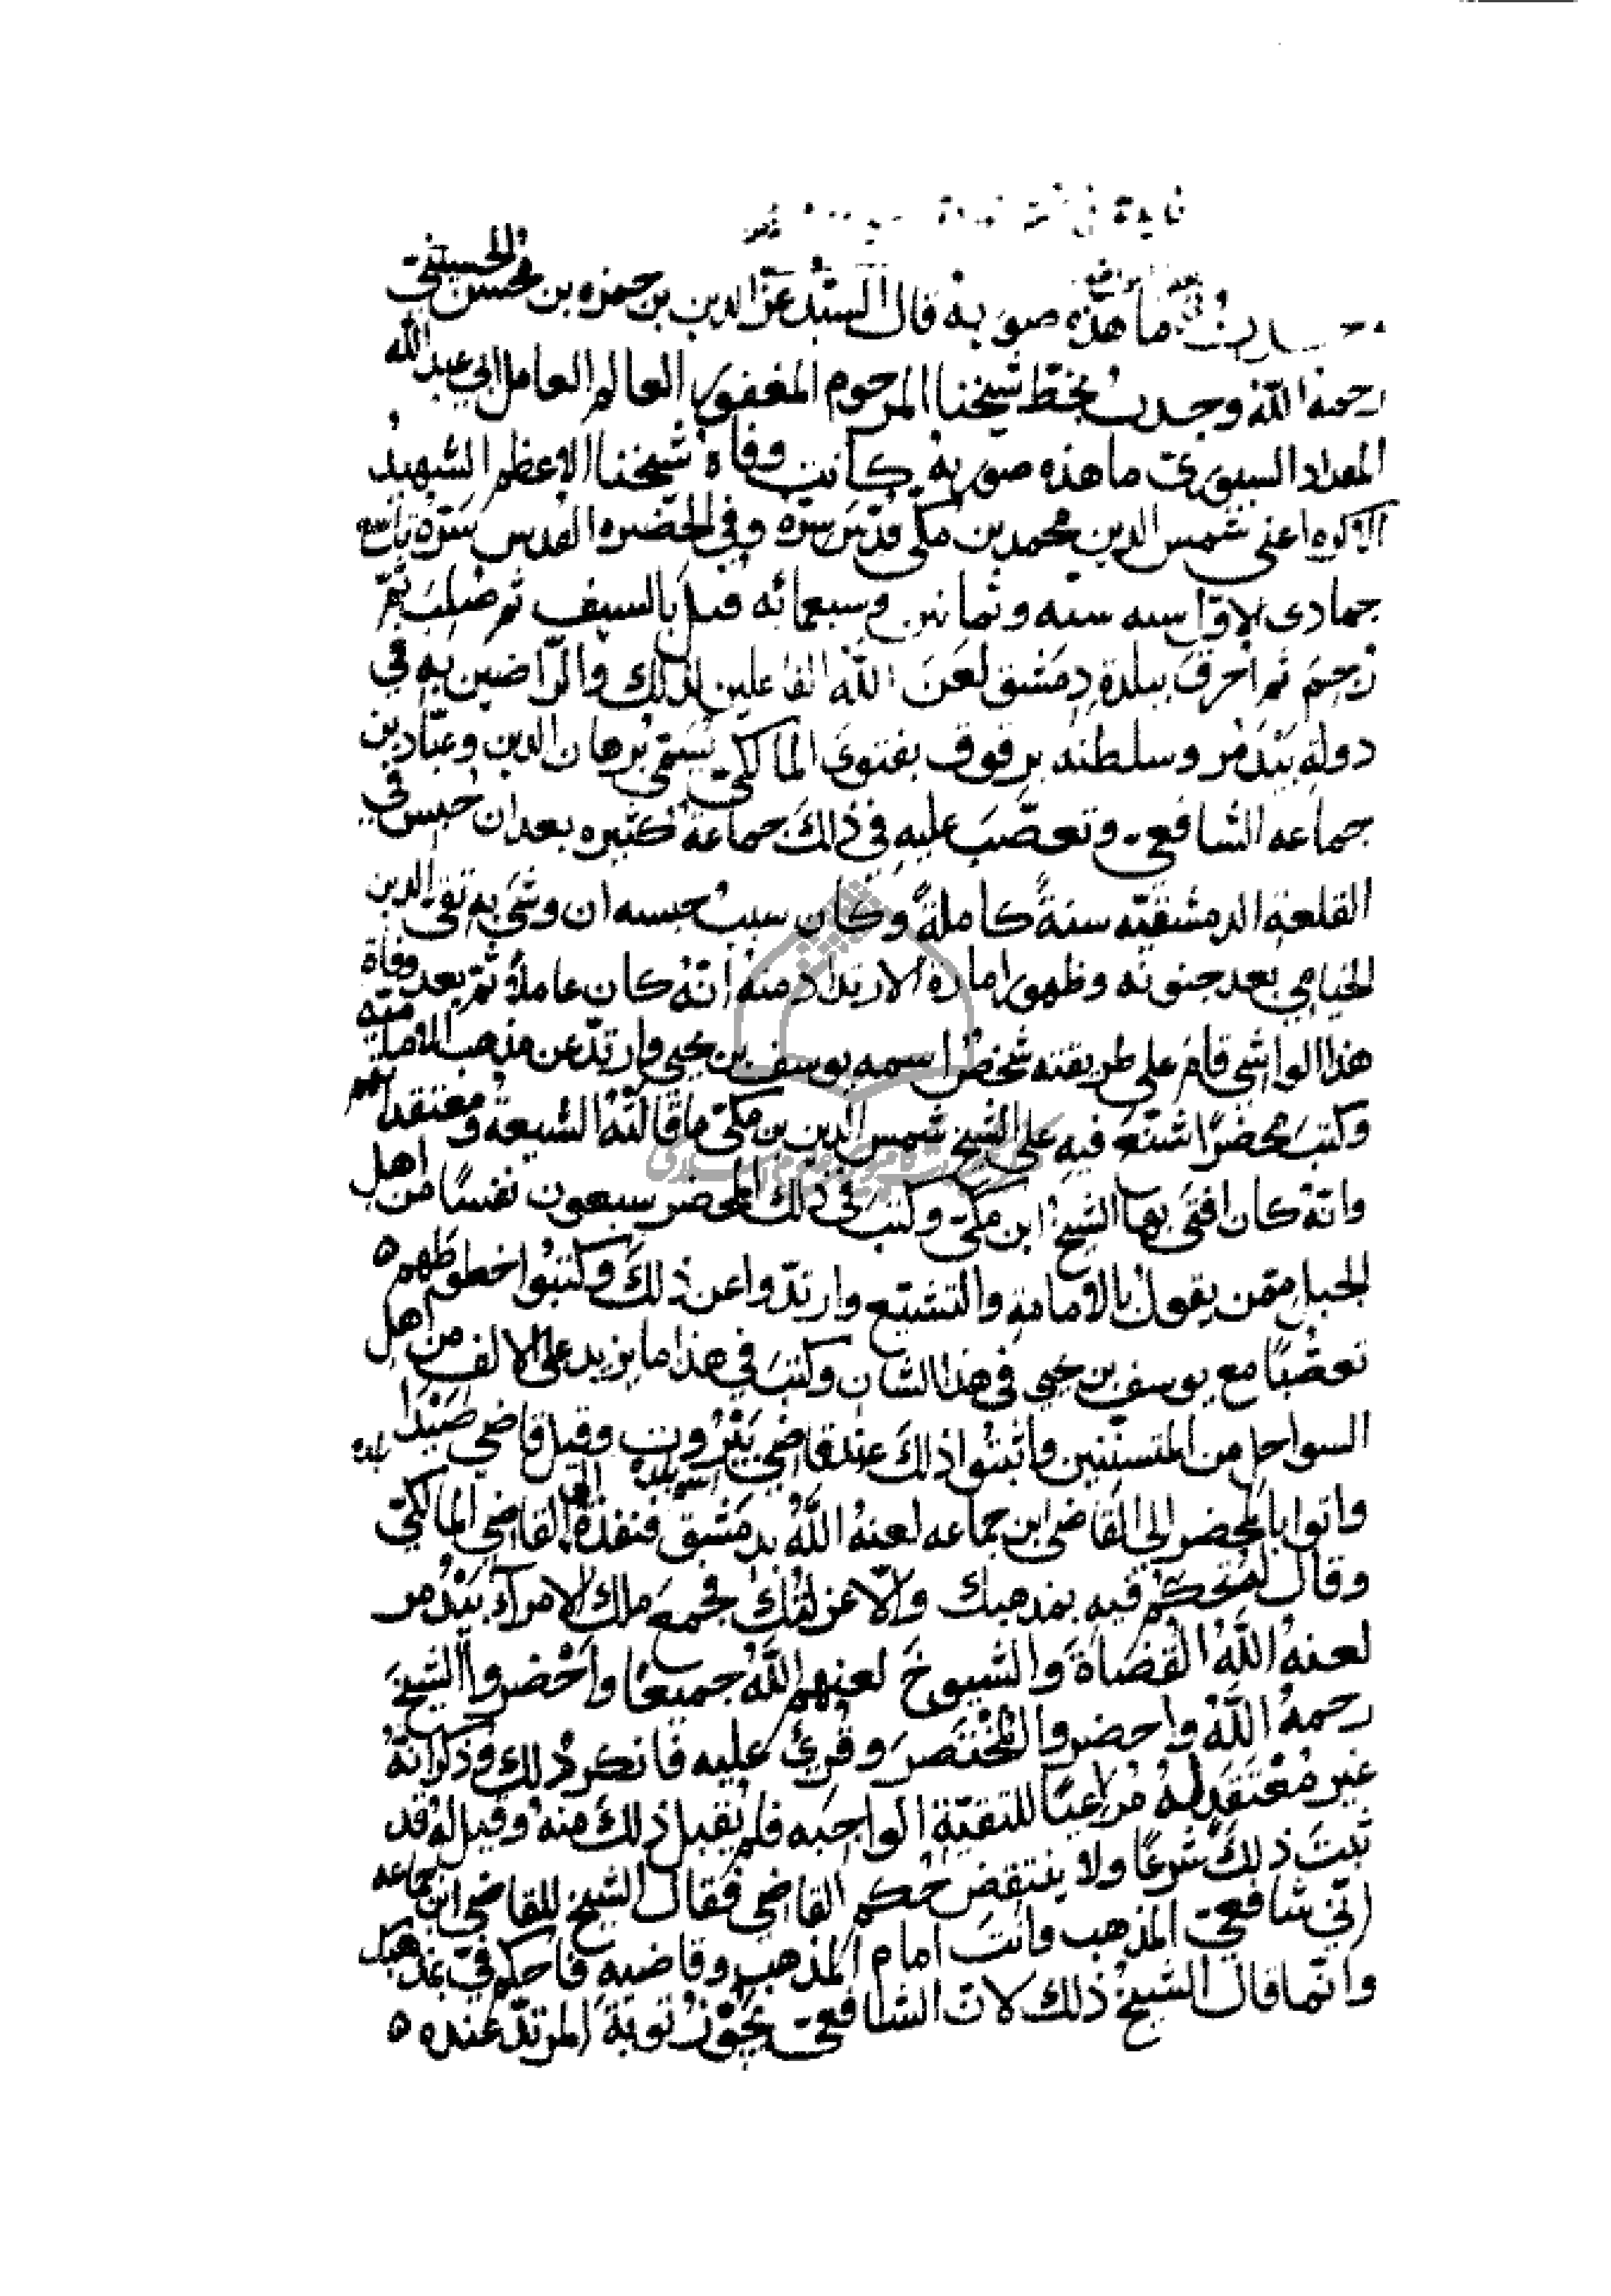 فايدة في
وجدت ما هذه صورته قال السيد عز الدين بن حمزه بن محسن الحسيني
رحمه الله وجدت بخط شيخنا المرحوم المغفور العالم العامل ابي عبد الله
المقداد السيوري ما هذه صورته كانت وفاة شيخنا الاعظم الشهيد
الاكرم اعني شمس الدين محمد بن مكي قدس سره وفي الحضره القدس سره تاسع
جمادى الاول سنه سته وثمانين وسبعمائه قتل بالسيف ثم صُلب ثم
رُجِمَ ثم اُحرقَ ببلدةِ دِمَشق لَعَنَ الله الفاعلين لذلك والرّاضين به في
دولة بَيْدَمُر وسلطنه برقوق بفتوى المالكيّ يُسَمّى بُرهان الدين وعبّاد بن
جماعه الشافعي وتعصّبَ عليه في ذلكَ جماعة كثيره بعد ان حُبِس في
القلعه الدمشقيّه سنةً كاملةً وكان سببُ حبسه ان وشَى به تقيّ الدين
الخيامي بعد جنونه وظهور امارة الارتداد منه أنّهُ كان عاملًا ثم بعد وفاة
هذا الواشي قامَ على طريقته شخصٌ اسمه يوسف بن يحيى وارتدّ عن مذهب الاماميّه
وكتبَ محضرًا شنّعَ فيه على الشيخ شمس الدين بن مكيّ ما قالَتْهُ الشيعةُ ومعتقداتهم
وانّهُ كان افتَى بها الشيخُ ابن مكيّ وكتبَ في ذلك المحضر سبعون نفسًا من اهل
الجبل ممّن يقولُ بالامامةِ والتشيّع وارتدّوا عن ذلكَ وكتبُوا خطوطهم
تعصّبًا مع يوسف بن يحيى في هذا الشان وكتبَ في هذا ما يزيد على الالف من اهل
السواحل من المتسنّنين واثبتُوا ذلكَ عند قاضي بَيْرُوت وقيل قاضي صَيْدا
واتوا بالمحضر الى القاضي ابن جماعه لعنهُ اللهُ بدمشق فنفذهُ الى القاضي المالكيّ
وقال له تحكمْ فيه بمذهبك والّا عزلتُكَ فجمعَ ملك الامراء بَيْدُمر
لعنهُ اللهُ القُضاةَ والشيوخَ لعنهم اللهُ جميعًا واَحْضرواُ الشيخَ
رحمهُ اللهُ واحضروا المُحْتَضَرَ وقُرِئَ عليه فانكرَ ذلك وذكرَ انّهُ
غيرُ مُعْتَقدٍ لهُ مُراعيًا للتقيّةِ الواجبه فلم يُقبل ذلكَ منهُ وقيل لهُ قد
ثبتَ ذلكَ شرعًا ولا ينتقض حُكم القاضي فقال الشيخ للقاضي ابن جماعه
اِنّي شافعيّ المذهب وانتَ امام المذهب وقاضيه فاحكم فيّ بمذهبك
وانّما قال الشيخُ ذلك لانّ الشافعيّ يُجوّزُ توبةَ المرتدّ عنده ٥